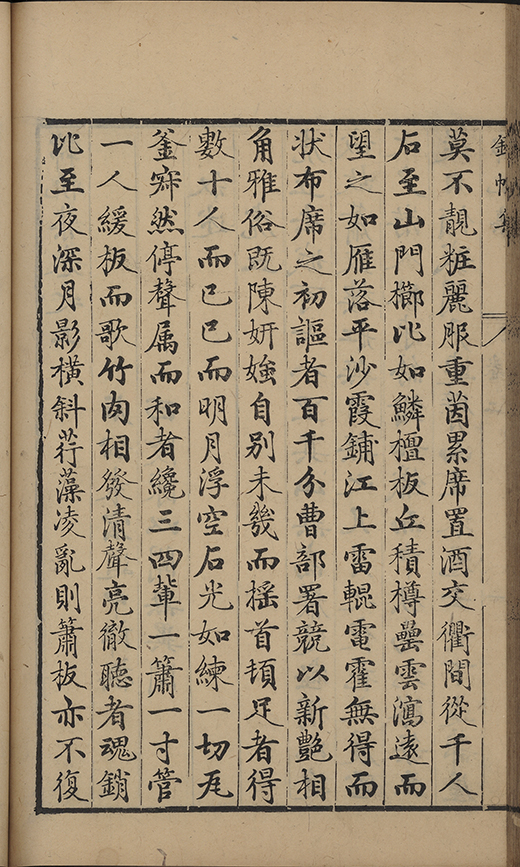 錦帆集
莫不靚粧麗服重茵累席置酒交衢間從千人
石至山門櫛比如鱗檀板丘積樽罍雲瀉遠而
望之如雁落平沙霞鋪江上雷輥電霍無得而
狀布席之初謳者百千分曹部署競以新艷相
角雅俗既陳妍媸自別未幾而搖首頓足者得
數十人而已已而明月浮空石光如練一切瓦
釜寂然停聲属而和者纔三四軰一簫一寸管
一人緩板而歌竹肉相發清聲亮徹聽者魂銷
比至夜深月影橫斜荇藻凌亂則簫板亦不復